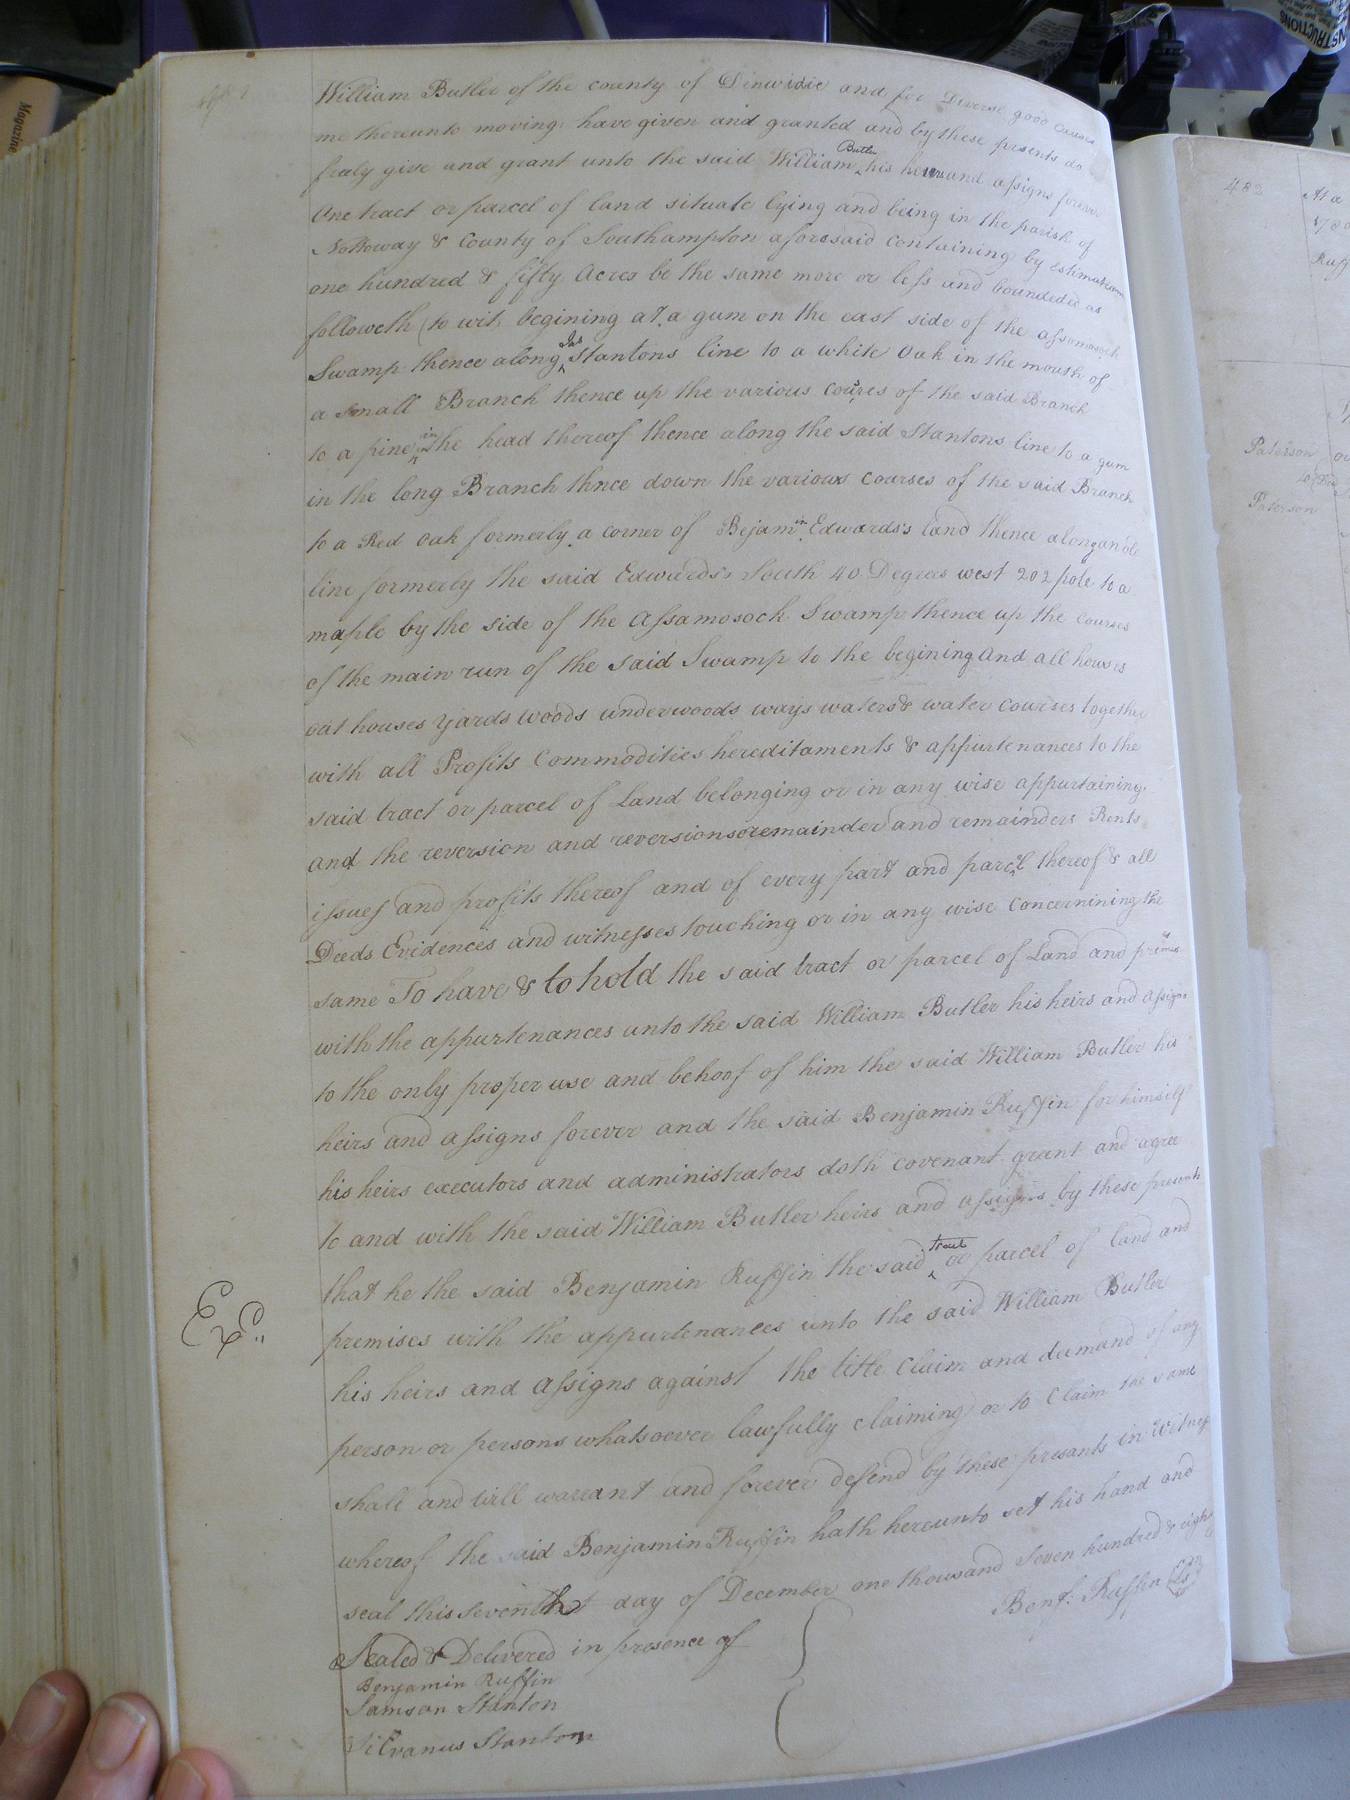 William Butler of the county of Dinwidie and for Diverse good Causes
me thereunto moving have given and granted and by these presents do
freely give and grant unto the said William Butler his heirs and assigns forever
One tract or parcel of land situate lying and being in the parish of
Nottoway & County of Southampton aforesaid containing by estimation
one hundred & fifty Acres be the same more or less and boundeded as
followeth (to wit) begining at a gum on the east side of the assamosock
Swamp thence along Stantons line to a white Oak in the mouth of
a small Branch thence up the various courses of the said Branch
to a pine in the head thereof thence along the said Stantons line to a gum
in the long Branch thnce down the various courses of the said Branch
to a Red oak formerly a corner of Bejamin Edwards's land thence along an old
line formerly the said Edwards's South 40 Degrees west 202 pole to a
maple by the side of the Assamosock Swamp thence up the courses
of the main run of the said Swamp to the begining and all houses
out houses yards woods underwoods ways waters & water courses together
with all Profits Commodities hereditaments & appurtenances to the
said tract or parcel of Land belonging or in any wise appurtaining
and the reversion and reversions remainder and remainders Rents
issues and profits thereof and of every part and parcel thereof & all
Deeds Evidences and witnesses touching or in any wise concernining the
same To have & to hold the said tract or parcel of Land and premises
with the appurtenances unto the said William Butler his heirs and assigns
to the only proper use and behoof of him the said William Butler his
heirs and assigns forever and the said Benjamin Ruffin for himself
his heirs executors and administrators doth covenant grant and agree
to and with the said William Butler heirs and assigns by these presents
that he the said Benjamin Ruffin the said tract or parcel of land and
premises with the appurtenances unto the said William Butler
his heirs and assigns against the title claim and demand of any
person or persons whatsoever lawfully claiming or to claim the same
shall and will warrant and forever defend by these presents in Witness
whereof the said Benjamin Ruffin hath hereunto set his hand and
seal this seventh day of December one thousand Seven hundred & eighty
Benj: Ruffin (Ls)
Sealed & Delivered in presence of
Benjamin Ruffin
Samson Stanton
Silvanus Stanton
Exd
482
At a
Paterson
to
Paterson
Magazine
INSTRUCTIONS